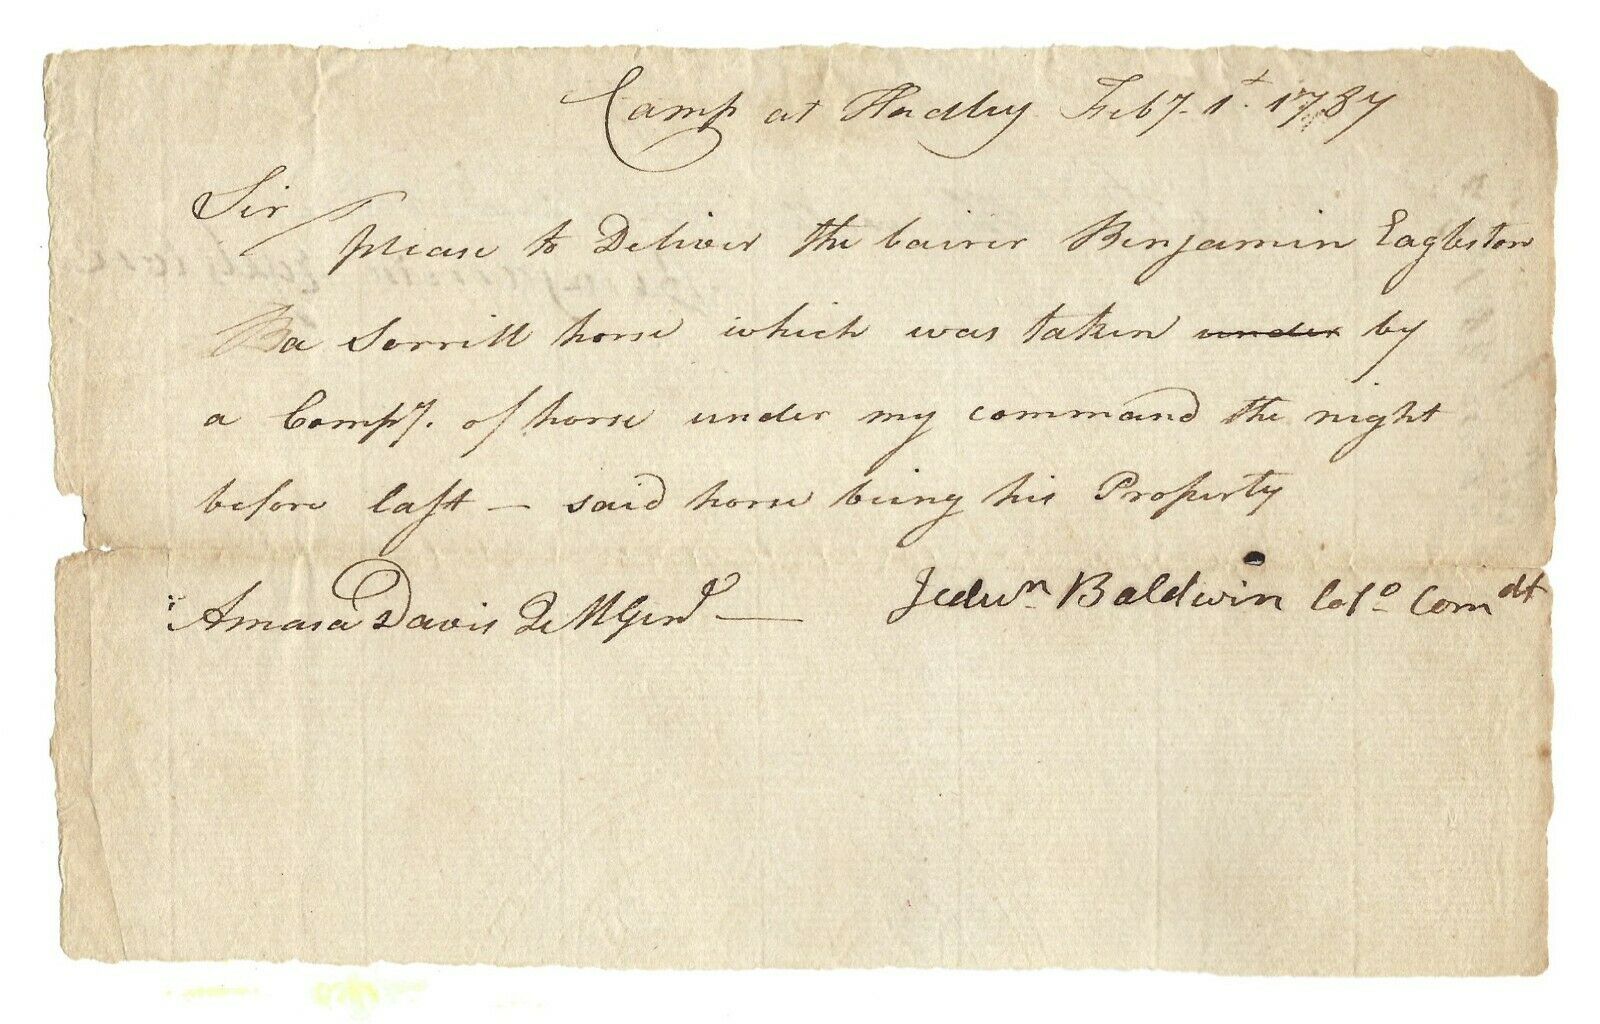 Camp at Hadley Feby. 1t. 1787
Sir
please to Deliver the bairer Benjamin Eagleston
a Sorrill horse which was taken under by
a Compy. of horse under my command the night
before last — said horse being his Property
Amasa Davis Q M Genl — Jedun Baldwin Colo Comdt